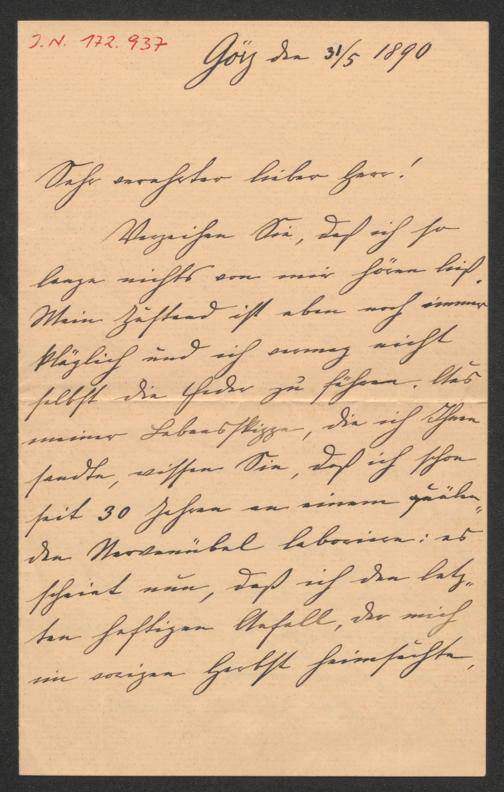 J.N. 172.937
Görz den 31/5 1890
Sehr verehrter lieber Herr!
Verzeihen Sie, daß ich so
lange nichts von mir hören ließ.
Mein Zustand ist eben noch immer
kläglich und ich vermag nicht
selbst die Feder zu führen. Aus
meiner Lebensskizze, die ich Ihnen
sandte, wissen Sie, daß ich schon
seit 30 Jahren an einem quälen„
den Nervenübel laborire: es
scheint nun, daß ich den letz„
ten heftigen Anfall, der mich
im vorigen Herbst heimsuchte,